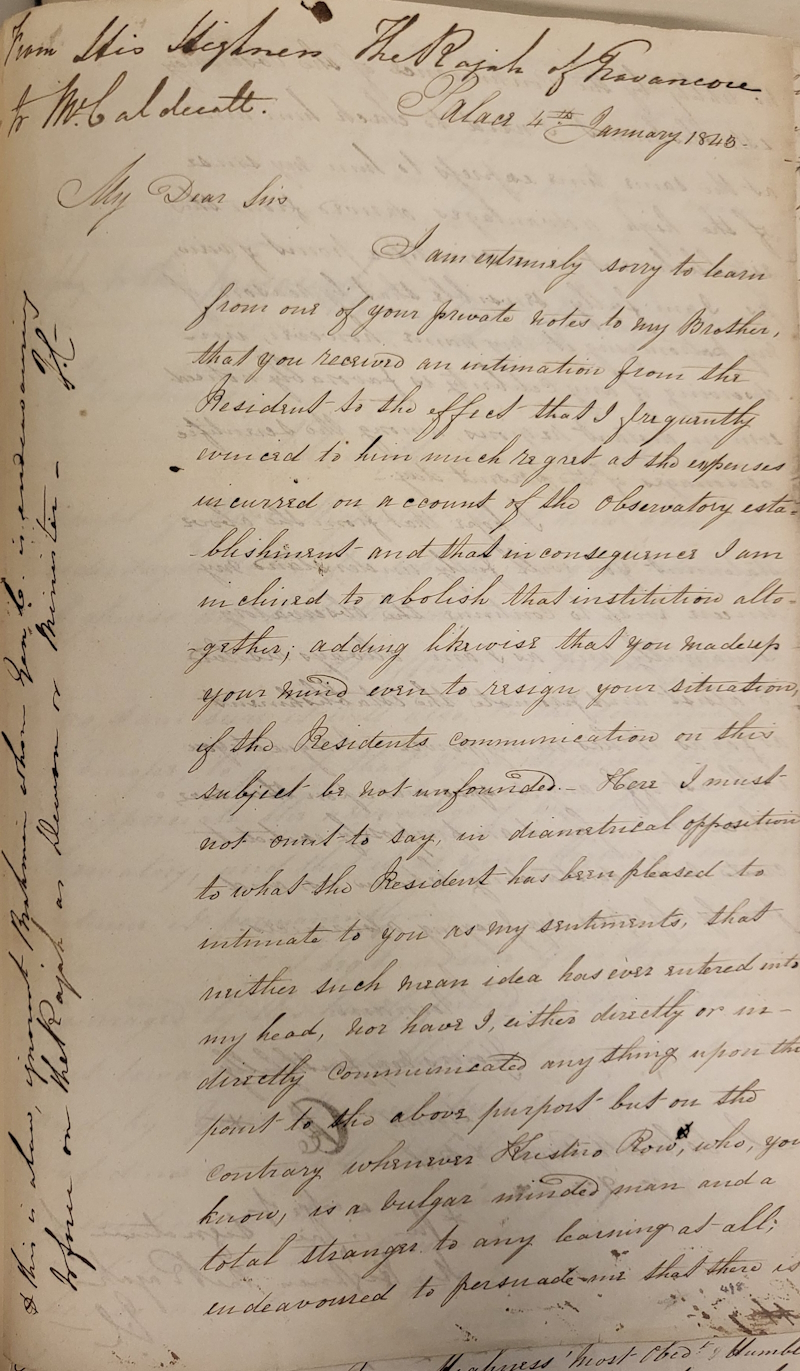 From His Highness The Rajah of Travancore
to Mr. Caldecott.
Palace 4th January 1840.
My Dear Sir
I am extremely sorry to learn
from one of your private notes to my Brother,
that you received an intimation from the
Resident to the effect that I frequently
evinced to him much regret at the expenses
incurred on account of the Observatory esta-
-blishment and that in consequence I am
inclined to abolish that institution alto-
-gether; adding likewise that you made up
your mind even to resign your situation,
if the Residents communication on this
subject be not unfounded. — Here I must
not omit to say, in diametrical opposition
to what the Resident has been pleased to
intimate to you as my sentiments, that
neither such mean idea has ever entered into
my head, nor have I, either directly or in-
directly communicated any thing upon the
point to the above purport but on the
contrary whenever Kristno Row, who, you
know, is a vulgar minded man and a
total stranger to any learning at all;
endeavoured to persuade me that there is
This is a low, ignorant Brahmin whom Gen. is endeavouring
to force on the Rajah as Dewan or Minister —
Highness' most Obedt Humble